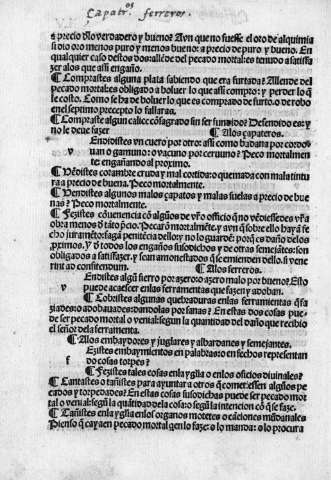 Çapatr.os ferreros.
a precio dᷣlo verdadero y bueno? Avn que no fuesse el oro de alquimia
si dio oro menos puro y menos bueno: a precio de puro y bueno. En
qualquier caso destos demas allende del pecado mortal es tenudo a satisfa
zer alos que assi engaño.
¶ Comprastes alguna plata sabiendo que era furtada? Allende del
pecado mortal es obligado a boluer lo que assi compro: y perder lo que
le costo. Como se ha de boluer lo que es comprado de furto. o de robo
en el septimo precepto lo fallaras.
¶ Comprastes algun calice cōsagrado sin ser fundido? Defendido es: y
no le deue fazer ¶ Alos çapateros.
Endistes vn cuero por otro: assi como badana por cordo
v uan o gamuno: o vacuno por ceruuno? Peco mortalmen
te engañando al proximo.
¶ Vēdistes corambre cruda y mal cortida: o quemada con mala tintu
ra a precio de buena. Peco mortalmente.
¶ Vendistes algunos malos çapatos y malas suelas a precio de bue
nas? Peco mortalmente.
¶ Fezistes cōuenencia cō algūos de vr̄o officio q̄ no vēdiessedes vr̄a
obra menos d̄ tāto p̄cio. Pecarō mortalmēte. y avn q̄ sobre ello haya fe
cho juramēto: faga penitēcia dello y no lo guardē: porq̄ es daño de los
primos. Y d̄ todos los engaños susodichos y de otras semejātes: son
obligados a satisfazer. y sean amonestados q̄ se emienden dello. si vene
rint ad confitendum. ¶ Alos ferreros.
Endistes algū fierro por azero: o azero malo por bueno? Esto
v puede acaescer enlas ferramientas que fazen y adoban.
¶ Encobristes algunas quebraduras enlas ferramientas q̄ fa
ziades: o adobauades: dandolas por sanas? En estas dos cosas pue
de ser pecado mortal o venial: segun la quantidad del daño que recibio
el señor dela ferramenta.
¶ Alos embaydores y juglares y albardanes y semejantes.
Ezistes embaymientos en palabras: o en fechos representan
f do cosas torpes?
¶ Fezistes tales cosas enla ygl̄ia o enlos oficios diuinales?
¶ Cantastes o tañistes para ayuntar a otros q̄ comēiessen algūos pe
cados y torpedades? En estas cosas susodichas puede ser pecado mor
tal o venial: segū la quātidad dela cosa: o segū la intencion cō q̄ se faze.
¶ Tañistes enla ygl̄ia enlos organos motetes o cāciones mūdanales
Pienso q̄ cayā en pecado mortal q̄en lo faze: o lo manda: o lo procura